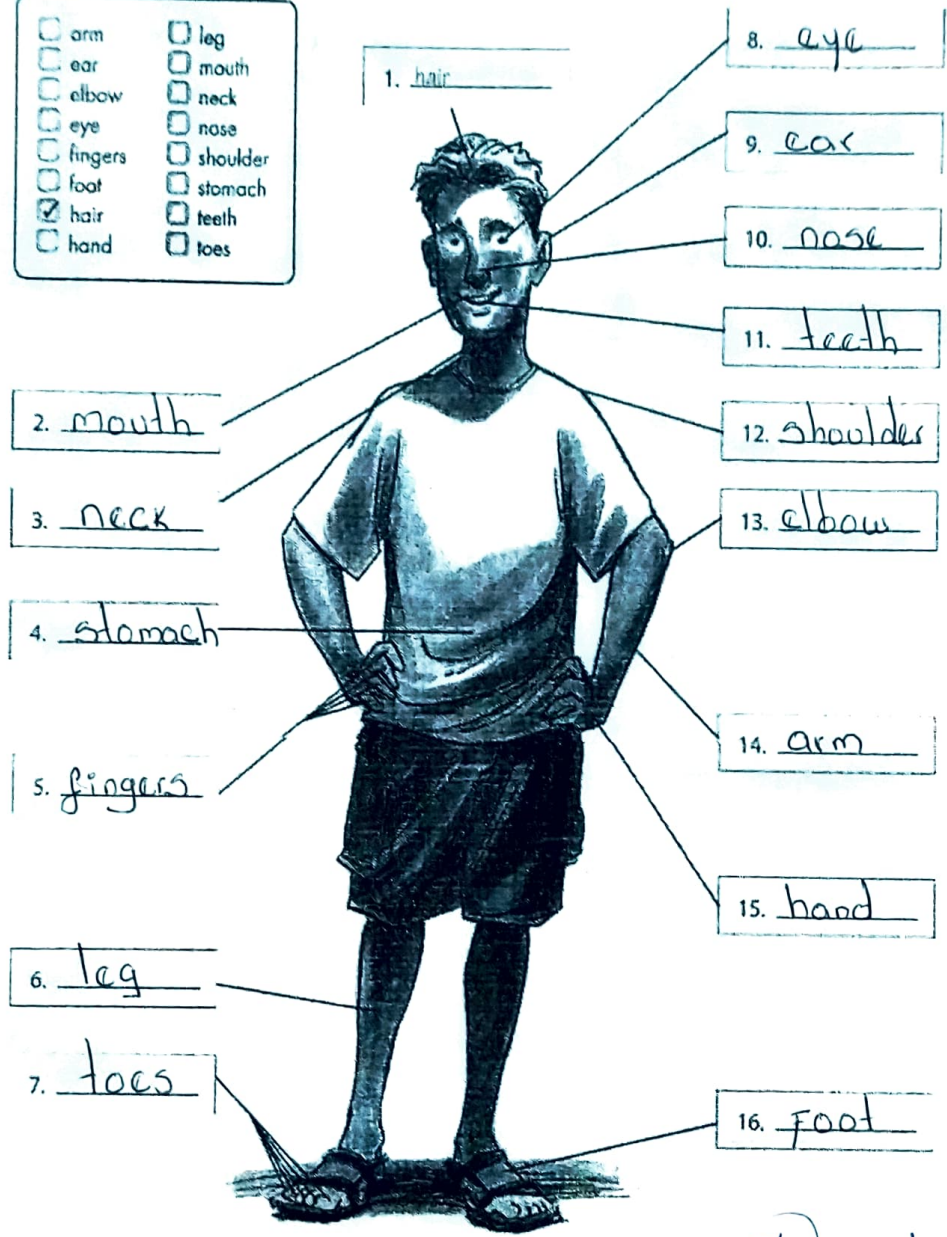 arm
ear
elbow
eye
fingers
foot
hair
hand
leg
mouth
neck
nose
shoulder
stomach
teeth
toes
1. hair
2. mouth
3. neck
4. stomach
5. fingers
6. leg
7. toes
8. eye
9. ear
10. nose
11. teeth
12. shoulder
13. elbow
14. arm
15. hand
16. Foot